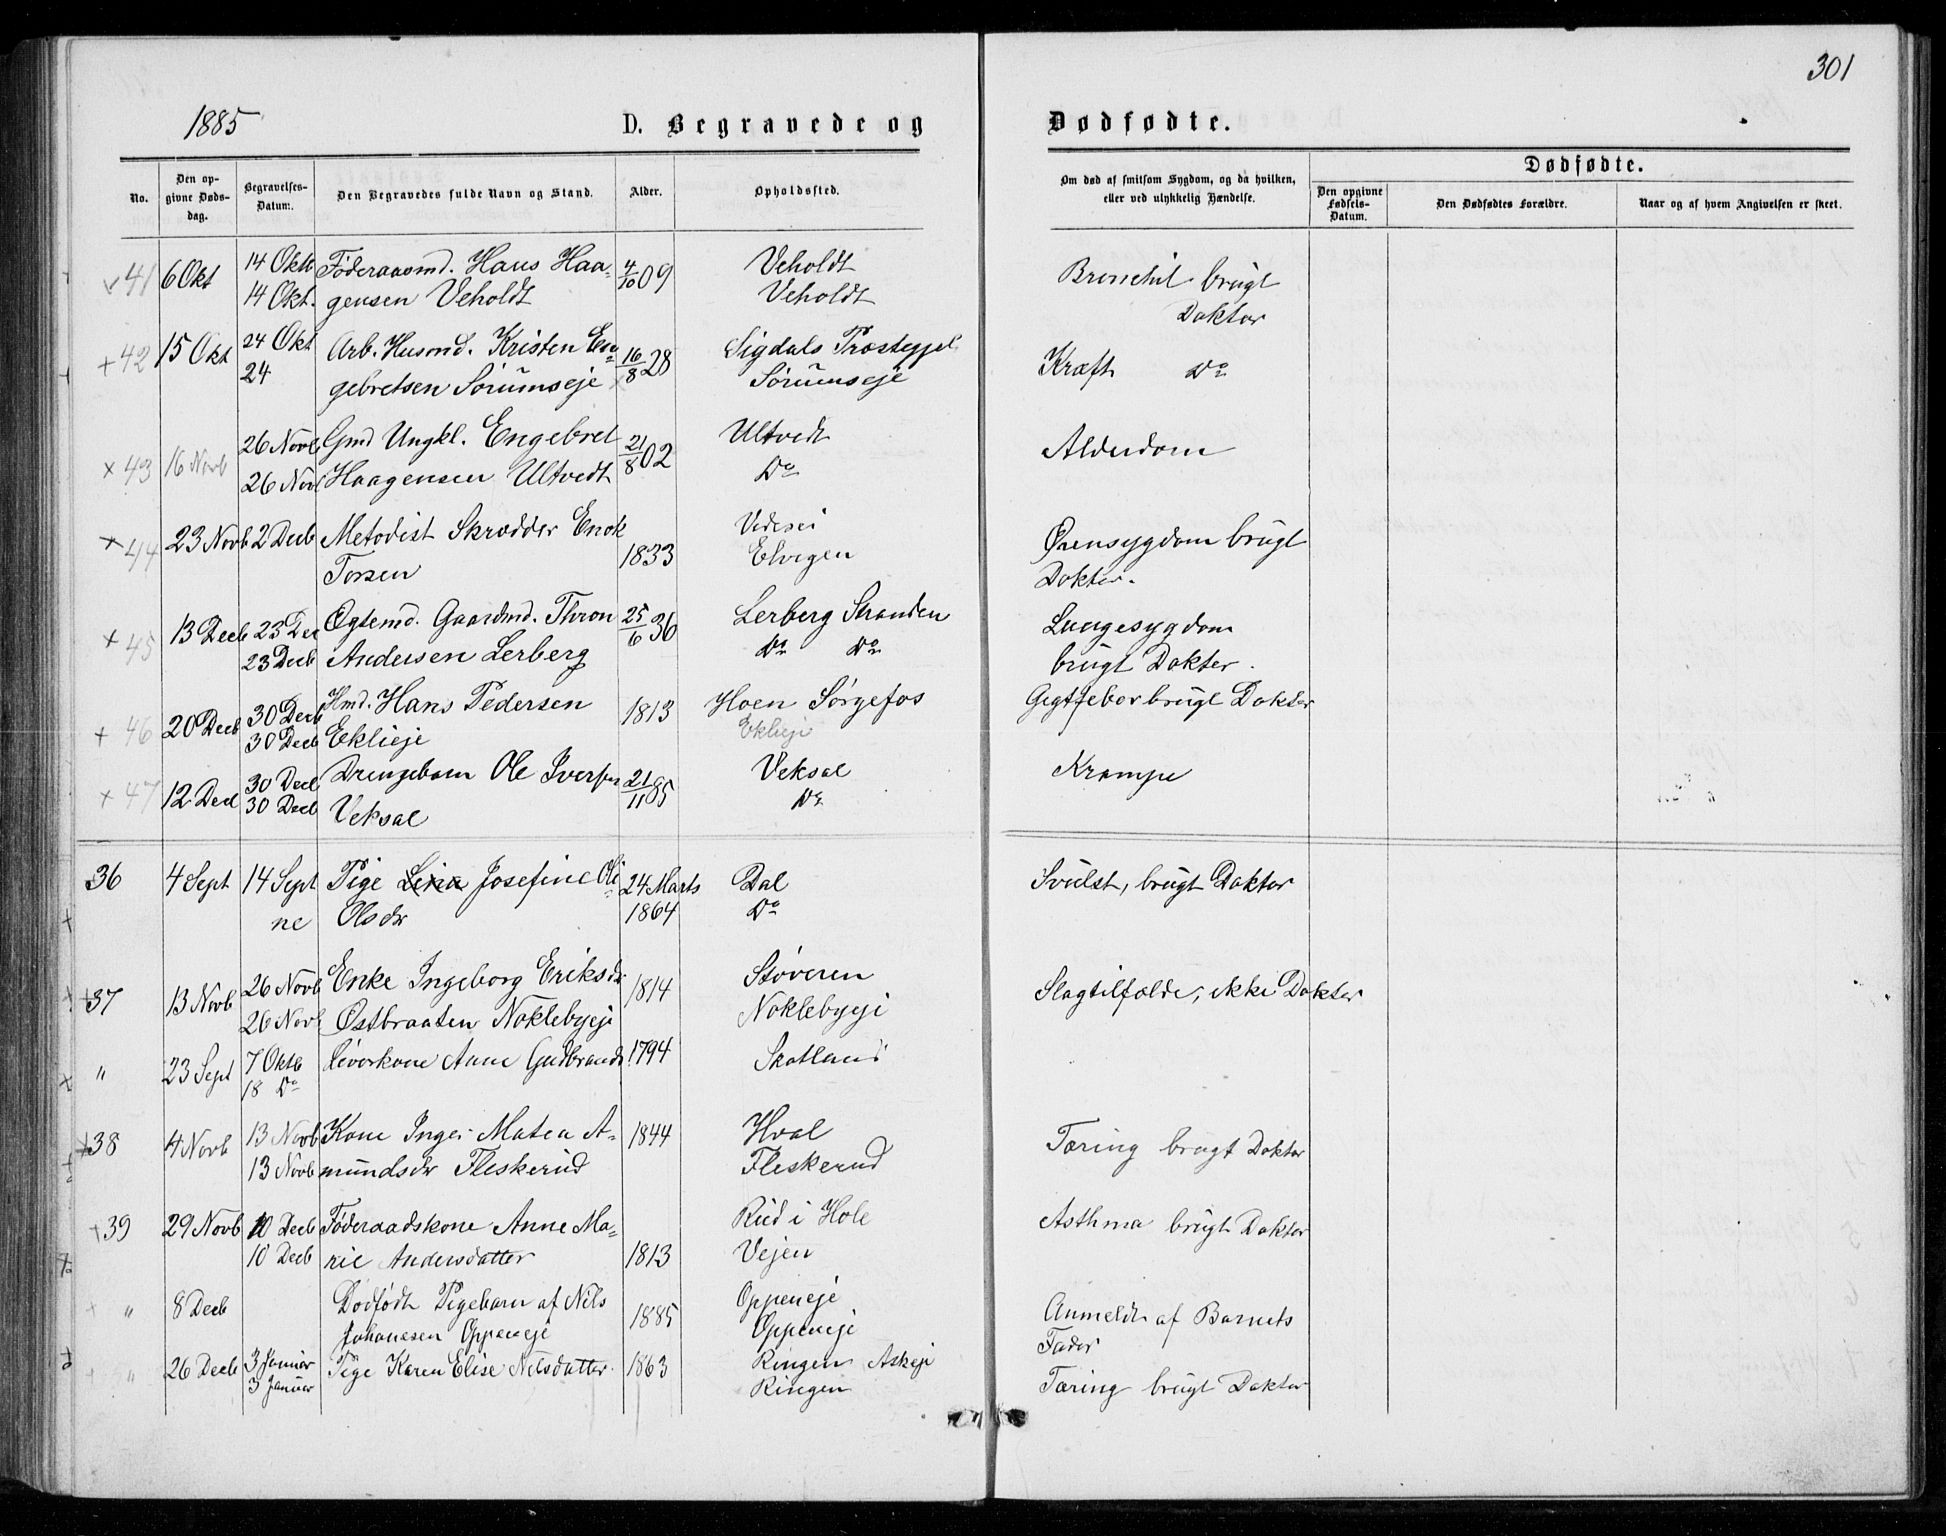 301
1885
D. Begravede og Dødfødte.
No.
Den opgivne Dødsdag.
Begravelses-Datum.
Den Begravedes fulde Navn og Stand.
Alder.
Opholdssted.
Om død af smitsom Sygdom, og da hvilken, eller ved ulykkelig Hændelse.
Dødfødte.
Den opgivne Fødsels-Datum.
Den Dødfødtes Forældre.
Naar og af hvem Angivelsen er skeet.
41 6 Okt 14 Oktb Føderaasmd. Hans Haa- 4/10 09 Veholdt Bronchit brugt
14 Okt. gensen Veholdt Veholdt Doktor
42 15 Okt 24 Okt Arb. Husmd. Kristen En- 16/8 28 Sigdals Præstegjel. Kræft Do
24 gebretsen Sørumseje Sørumseje
43 16 Novb 26 Novb Gmd Ungkl. Engebret 21/8 02 Ultvedt Alderdom
26 Novb Haagensen Ultvedt Do
44 23 Novb 2 Decb Metodist Skrædder Enok 1833 Ørensygdom brugt
Torsen Elvigen Dokter.
45 13 Decb 23 Dec Ogtemd. Gaardmd. Thron 25/6 36 Lerberg Stranden Lungesygdom
23 Decb Andersen Lerberg Do Do brugt Dokter.
46 20 Decb 30 Decb Hmd. Hans Pedersen 1813 Hoen Sørgefos Gigtfeber brugt Dokter
30 Decb Eklieje Eklieje
47 12 Decb 30 Decb Drengebarn Ole Iversen 21/11 85 Veksal Krampe
30 Decb Veksal Do
36 4 Sept 14 Sept Pige Lina Josefine Oli- 24 Marts Dal Svulst, brugt Doktor
ne Olsdr 1864 Do
37 13 Novb 26 Novb Enke Ingeborg Eriksdr 1814 Støveren Slagtilfælde, ikke Dokter
26 Novb Østbraaten Noklebyeje Noklebyeje
" 23 Sept 7 Oktb Anne Gudbrands 1794 Skotland
18 Do
38 4 Novb 13 Novb Kone Inger Matea A- 1844 Hval Tæring brugt Doktor
13 Novb mundsdr Fleskerud Fleskerud
39 29 Novb 10 Decb Føderaadskone Anne Ma- Rud i Hole Asthma brugt Doktor
10 Decb rie Andersdatter 1813 Vejen
" 8 Decb Dødfødt Pigebarn af Nils 1885 Oppeneje Anmeldt af Barnets
Johanesen Oppeneje Oppeneje Fader
" 26 Decb 3 Januar Pige Karen Elise Nilsdatter. 1863 Ringen Askeje Tæring brugt Doktor
3 Januar Ringen